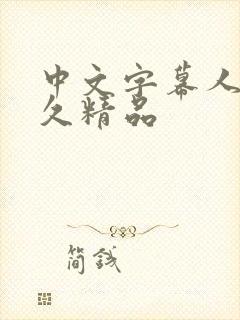 中文字幕人
久精品
简钱